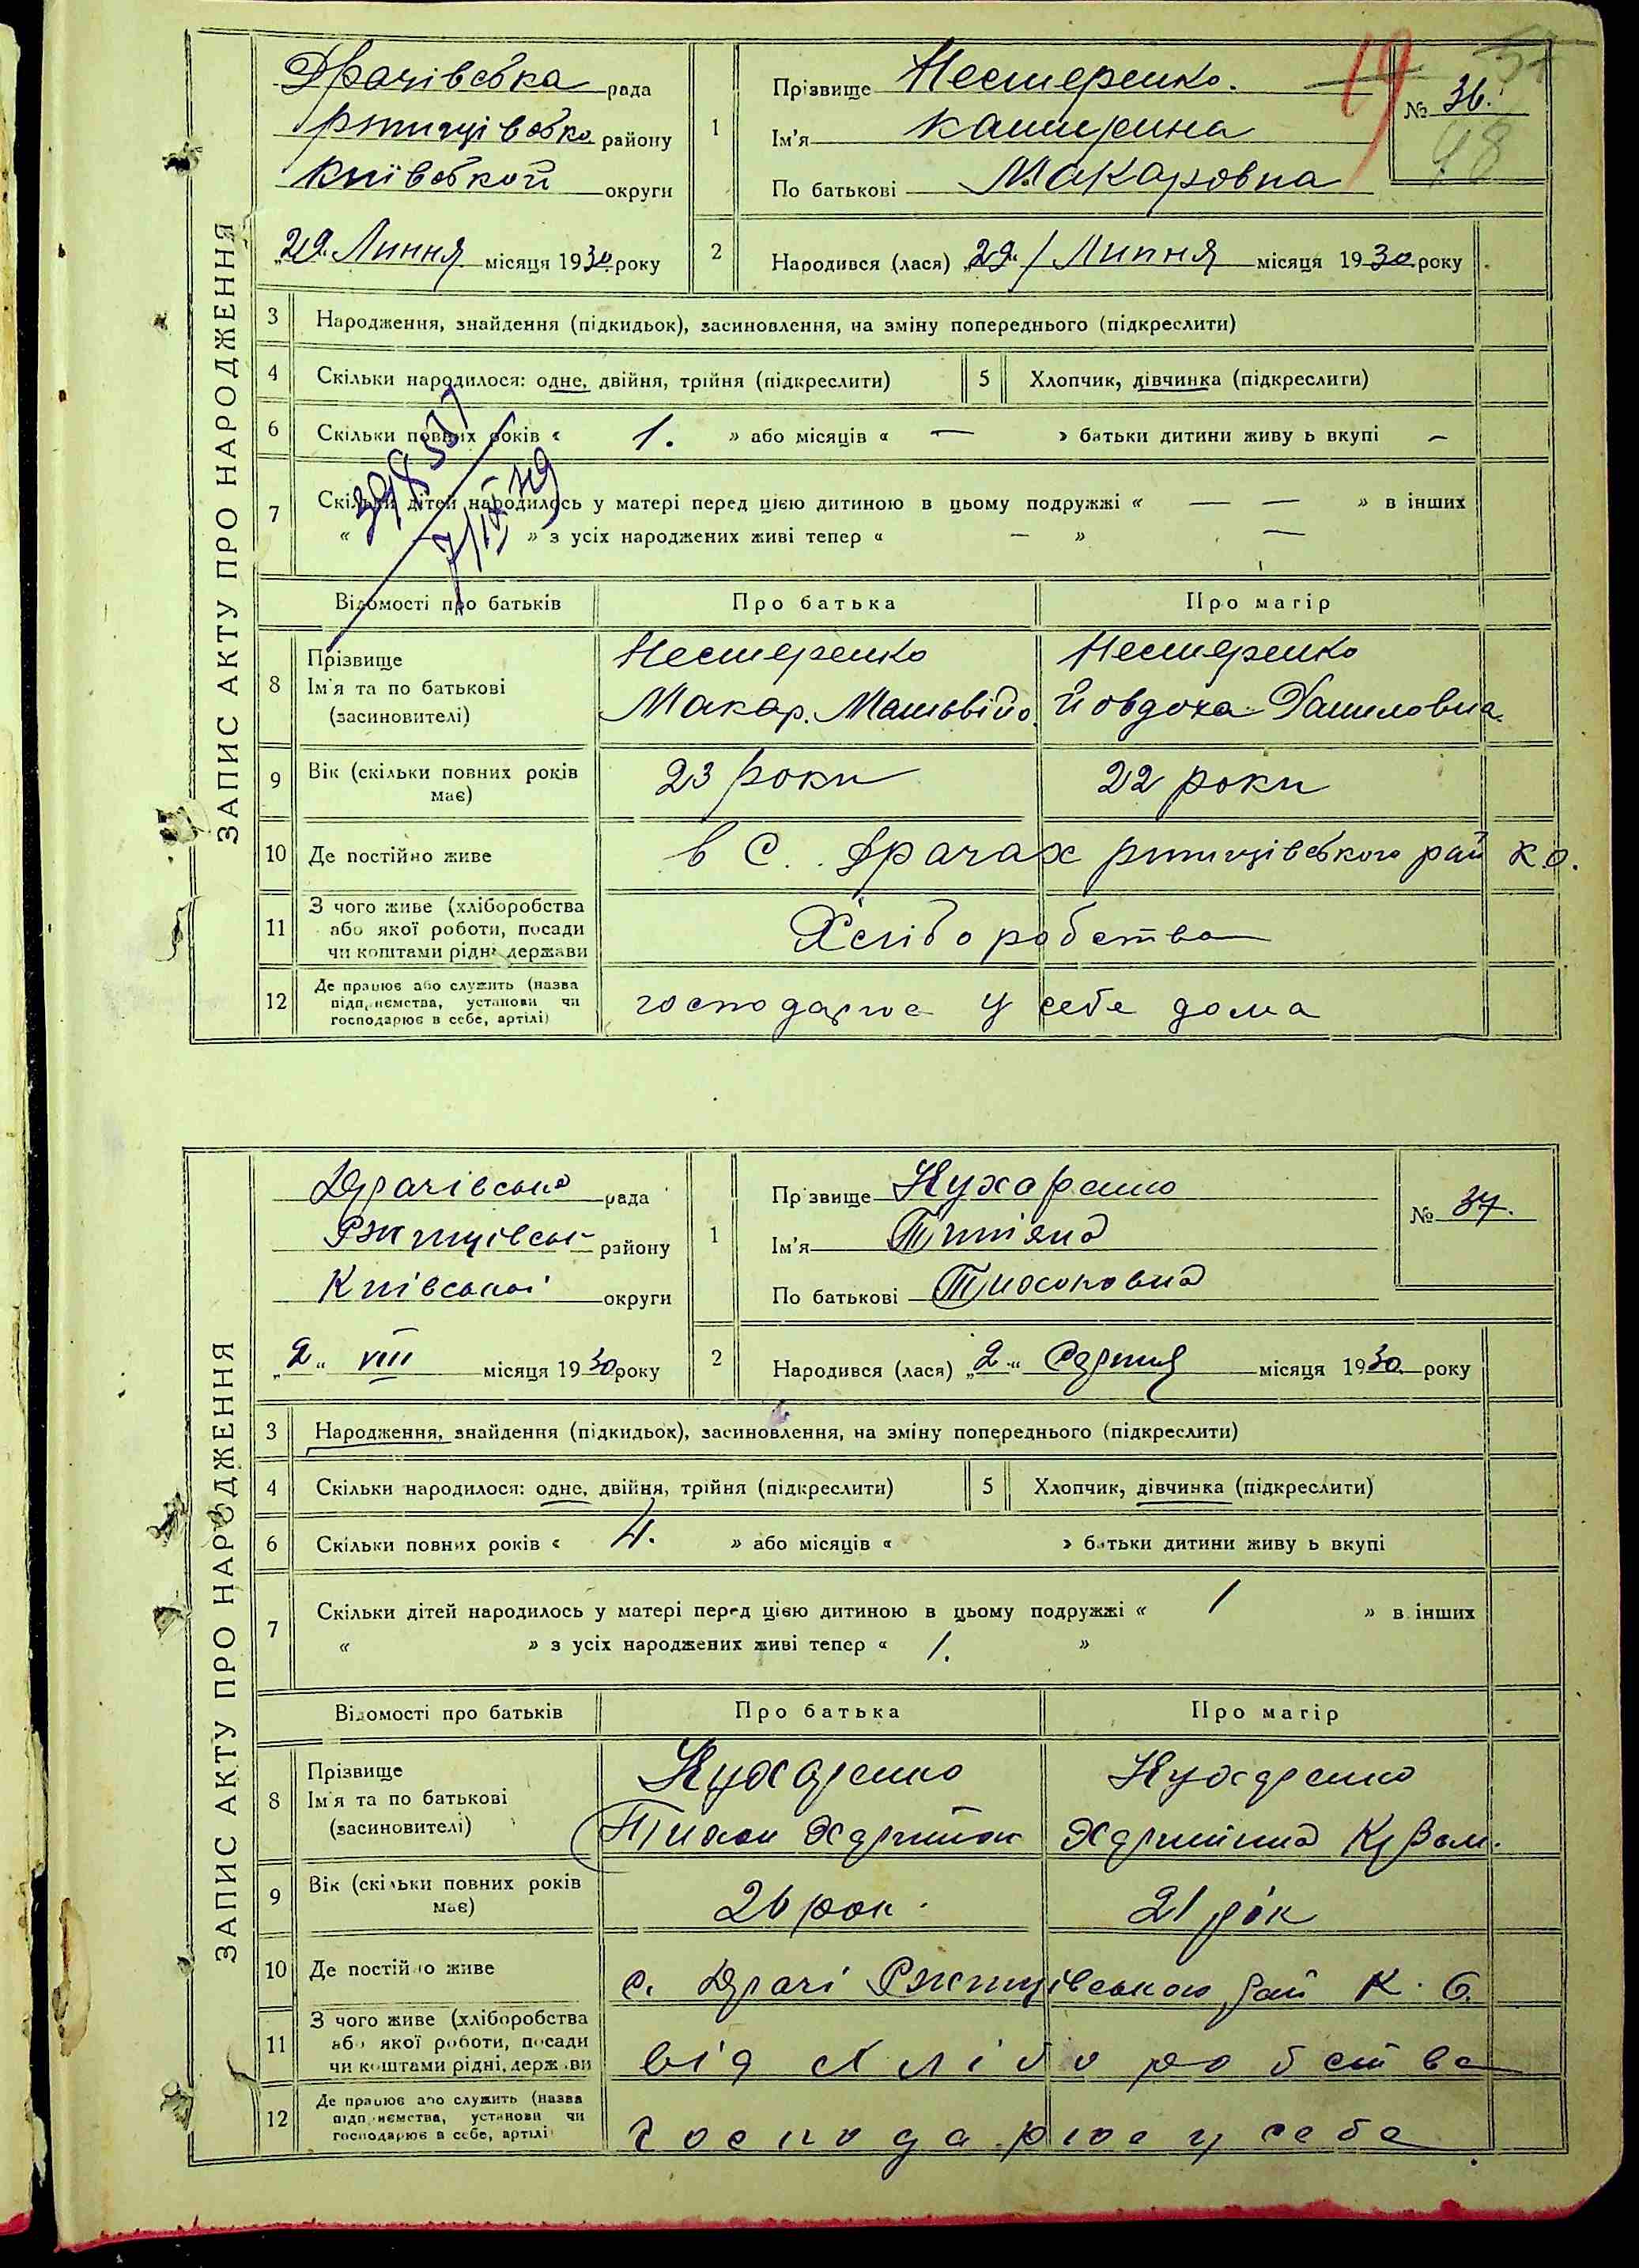 ЗАПИС АКТУ ПРО НАРОДЖЕННЯ
Драчівська рада
ржищівська району
Київської округи
„29“ Липня місяця 1930 року
1
Прізвище Нестеренко.
Ім'я Катирина
По батькові Макаровна
19
№ 36.
48
2
Народився (лася) „29“ Липня місяця 1930 року
3 Народження, знайдення (підкидьок), засиновлення, на зміну попереднього (підкреслити)
4 Скільки народилося: одне, двійня, трійня (підкреслити)
5 Хлопчик, дівчинка (підкреслити)
6 Скільки повних років « 1. » або місяців « — » батьки дитини живуть вкупі —
7 Скільки дітей народилось у матері перед цією дитиною в цьому подружжі « — — » в інших
« » з усіх народжених живі тепер « — » —
Відомості про батьків Про батька Про матір
8 Прізвище
Ім'я та по батькові
(засиновителі)
Нестеренко
Макар. Матьвійо.
Нестеренко
Йовдоха Даниловна
9 Вік (скільки повних років має)
23 роки
22 роки
10 Де постійно живе
в с. Драчах ржищівського рай К.О.
11 З чого живе (хліборобства
або якої роботи, посади
чи коштами рідні, держави
Хліборобства
12 Де працює або служить (назва
підприємства, установи чи
господарює в себе, артілі)
господарює у себе дома
ЗАПИС АКТУ ПРО НАРОДЖЕННЯ
Драчівська рада
Ржищівськ району
Київської округи
„2“ VIII місяця 1930 року
1
Прізвище Кухаренко
Ім'я Титяна
По батькові Тихоновна
№ 37.
2
Народився (лася) „2“ Серпня місяця 1930 року
3 Народження, знайдення (підкидьок), засиновлення, на зміну попереднього (підкреслити)
4 Скільки народилося: одне, двійня, трійня (підкреслити)
5 Хлопчик, дівчинка (підкреслити)
6 Скільки повних років « 4. » або місяців « » батьки дитини живуть вкупі
7 Скільки дітей народилось у матері перед цією дитиною в цьому подружжі « 1 » в інших
« » з усіх народжених живі тепер « 1. »
Відомості про батьків Про батька Про матір
8 Прізвище
Ім'я та по батькові
(засиновителі)
Кухаренко
Тихон Харитон
Кухаренко
Харитина
9 Вік (скільки повних років має)
26 рок.
21 рік
10 Де постійно живе
с. Драчі Ржищівського рай К. О.
11 З чого живе (хліборобства
або якої роботи, посади
чи коштами рідні, держави
від хліборобства
12 Де працює або служить (назва
підприємства, установи чи
господарює в себе, артілі)
господарює у себе